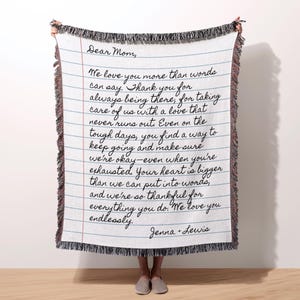 Dear Mom,
We love you more than words
can say. Thank you for
always being there, for taking
care of us with a love that
never runs out. Even on the
tough days, you find a way to
keep going and make sure
we're okay—even when you're
exhausted. Your heart is bigger
than we can put into words,
and we're so thankful for
everything you do. We love you
endlessly.
Jenna + Lewis